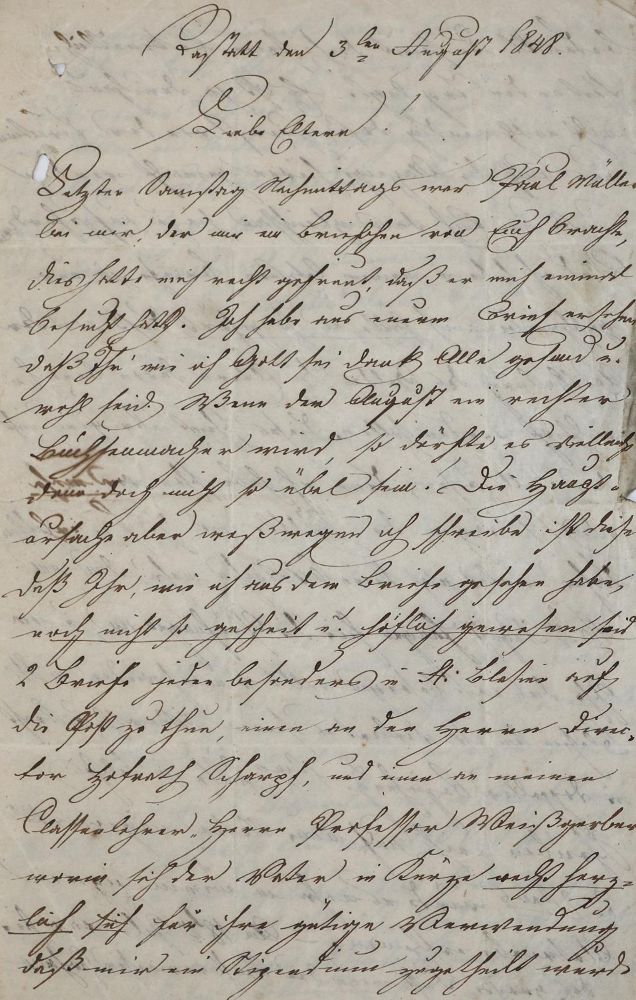 Rastatt den 3ten August 1848.
Liebe Eltern!
Letzten Samstag Nachmittags war Paul Müller
bei mir, der mir ein Briefchen von Euch brachte,
dies hatte mich recht gefreut, daß er mich einmal
besucht hatt. Ich habe aus euerm Brief ersehen
daß Ihr wie ich Gott sei dank Alle gesund u.
wohl seid. Wenn der August ein rechter
Büchsenmacher wird, so dörfte es vielleicht
denn doch nicht so übel sein. Die Haupt-
ursache aber weßwegen ich schreibe ist diese
daß Ihr, wie ich aus dem Briefe gesehen habe,
noch nicht so gescheit u. höflich gewesen seid
2 Briefe jeden besonders in St. Blasien auf
die Post zu thun, einen an den Herrn Direc-
tor Hofrath Scharpf, und einen an meinen
Classenlehrer, Herrn Professor Weißgerber
worin sich der Vater in Kürze recht herz-
lich für ihre gütige Verwendung
daß mir ein Stipendium zugetheilt wurde